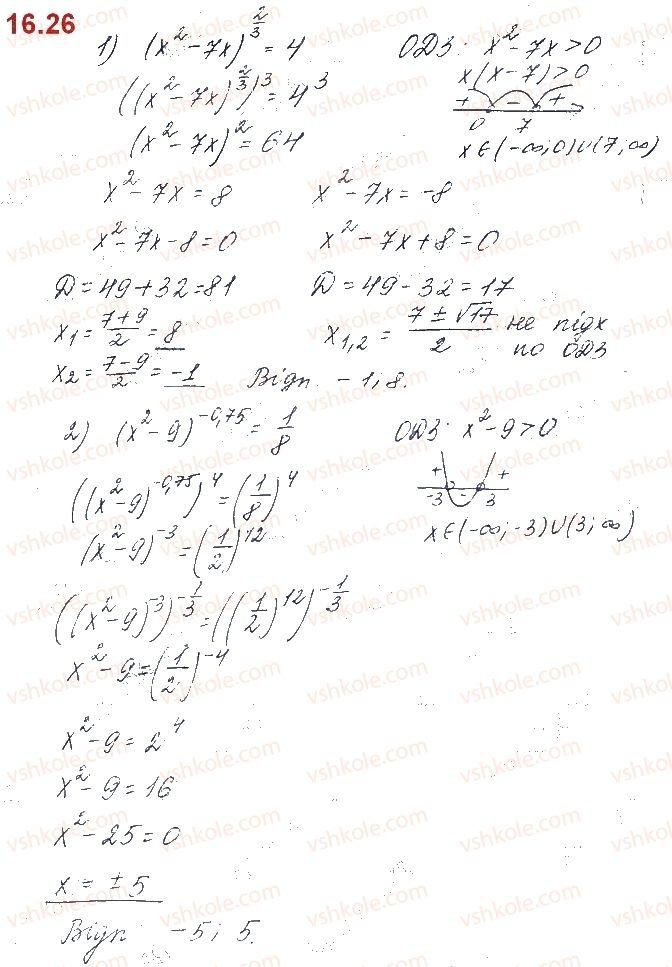 16.26
1) (x² - 7x)^(2/3) = 4 ОДЗ: x² - 7x > 0
((x² - 7x)^(2/3))³ = 4³ x(x - 7) > 0
+ - +
0 7
(x² - 7x)² = 64 x ∈ (-∞; 0) ∪ (7; ∞)
x² - 7x = 8 x² - 7x = -8
x² - 7x - 8 = 0 x² - 7x + 8 = 0
D = 49 + 32 = 81 D = 49 - 32 = 17
x₁ = (7 + 9)/2 = 8 x₁,₂ = (7 ± √17)/2 не підх
по ОДЗ
x₂ = (7 - 9)/2 = -1 Відп -1; 8.
2) (x² - 9)^(-0,75) = 1/8 ОДЗ: x² - 9 > 0
+ - +
-3 3
((x² - 9)^(-0,75))⁴ = (1/8)⁴
(x² - 9)⁻³ = (1/2)¹² x ∈ (-∞; -3) ∪ (3; ∞)
((x² - 9)⁻³)^(-1/3) = ((1/2)¹²)^(-1/3)
x² - 9 = (1/2)⁻⁴
x² - 9 = 2⁴
x² - 9 = 16
x² - 25 = 0
x = ± 5
Відп -5; 5.
vshkole.com